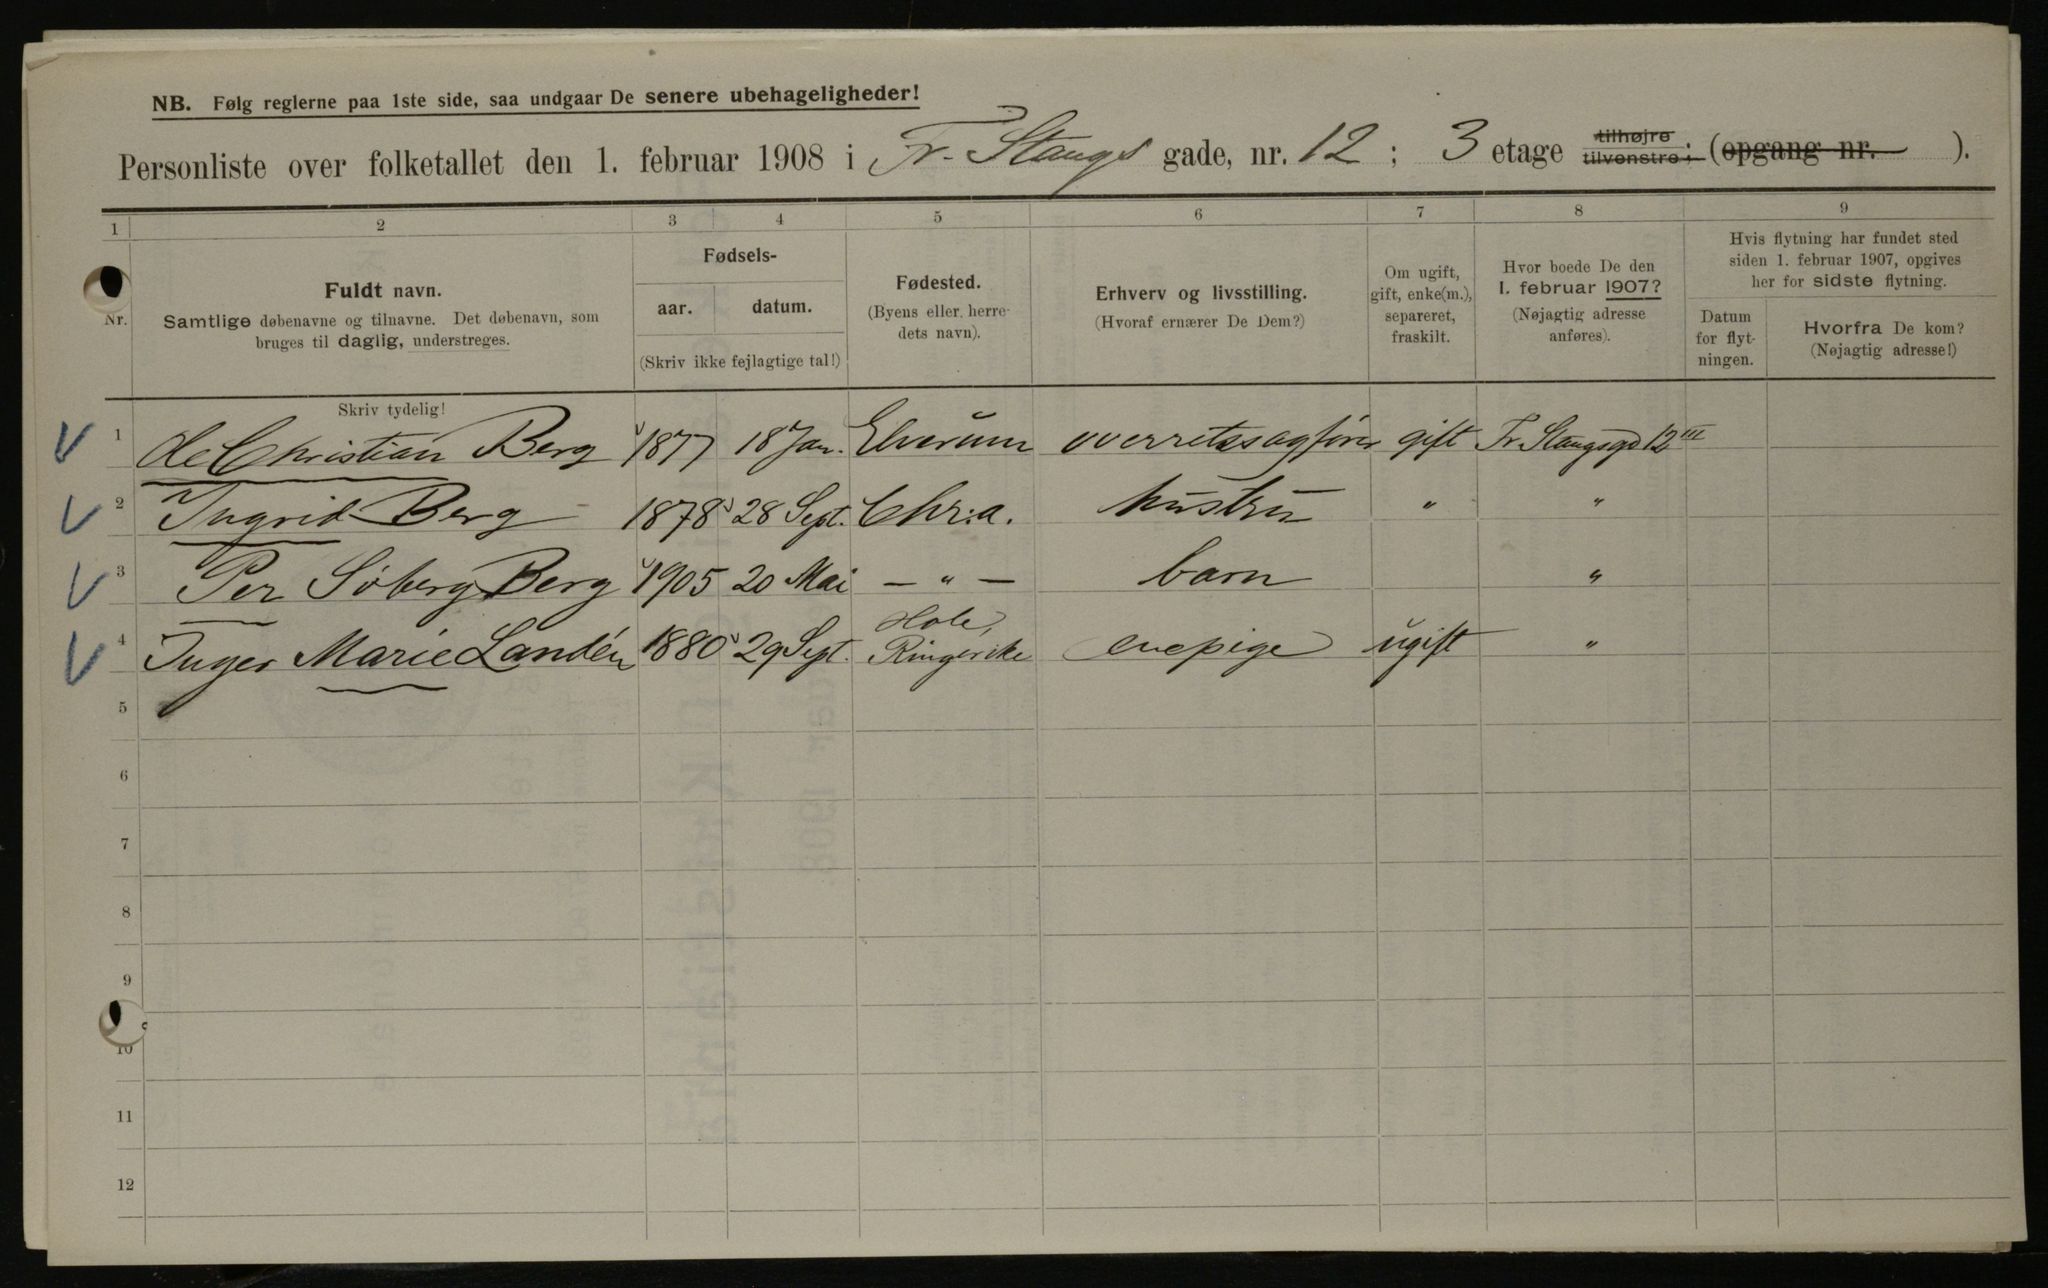 NB. Følg reglerne paa 1ste side, saa undgaar De senere ubehageligheder!
Personliste over folketallet den 1. februar 1908 i Fr. Stangs gade, nr. 12 ; 3 etage tilhøjre tilvenstre; (opgang nr. ).
1 2 3 4 5 6 7 8 9
Nr.
Fuldt navn.
Samtlige døbenavne og tilnavne. Det døbenavn, som
bruges til daglig, understreges.
Skriv tydelig!
Fødsels-
aar. datum.
(Skriv ikke fejlagtige tal!)
Fødested.
(Byens eller herre-
dets navn).
Erhverv og livsstilling.
(Hvoraf ernærer De Dem?)
Om ugift,
gift, enke(m.),
separeret,
fraskilt.
Hvor boede De den
1. februar 1907?
(Nøjagtig adresse
anføres).
Hvis flytning har fundet sted
siden 1. februar 1907, opgives
her for sidste flytning.
Datum
for flyt-
ningen.
Hvorfra De kom?
(Nøjagtig adresse!)
1 Christian Berg 1877 18 Jan. Elverum overretssagfører gift Fr Stangsgd 12 III
2 Ingrid Berg 1878 28 Sept. Chr:a. hustru " "
3 Per Söberg Berg 1905 20 Mai — " — barn "
4 Inger Marie Landén 1880 29 Sept. Hole, Ringerike enepige ugift "
5
6
7
8
9
10
11
12